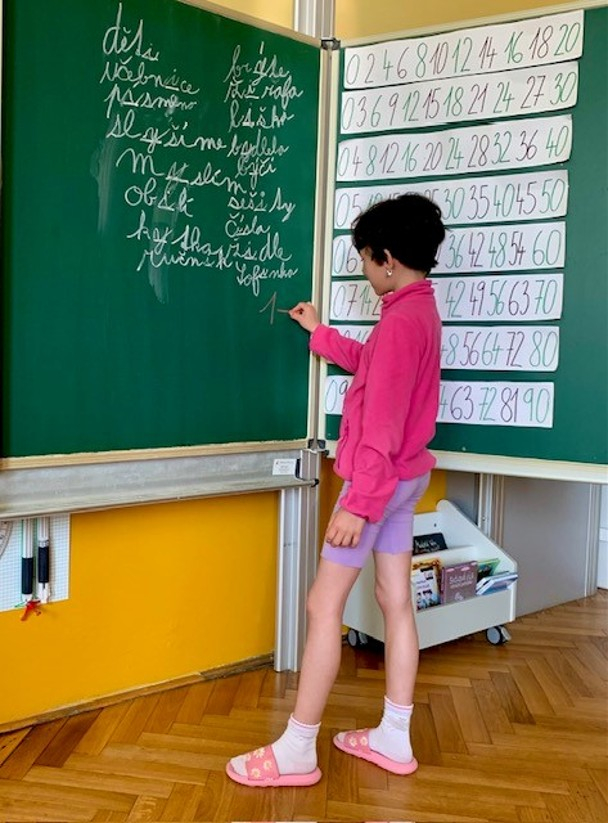 děti
učebnice
písmeno
slyšíme
myslím
obilí
kytka
ručník
brýle
žirafa
liška
bydlela
býčí
sešity
čísla
židle
0 2 4 6 8 10 12 14 16 18 20
0 3 6 9 12 15 18 21 24 27 30
0 4 8 12 16 20 24 28 32 36 40
0 5 30 35 40 45 50
0 6 36 42 48 54 60
0 7 14 42 49 56 63 70
56 64 72 80
0 9 63 72 81 90